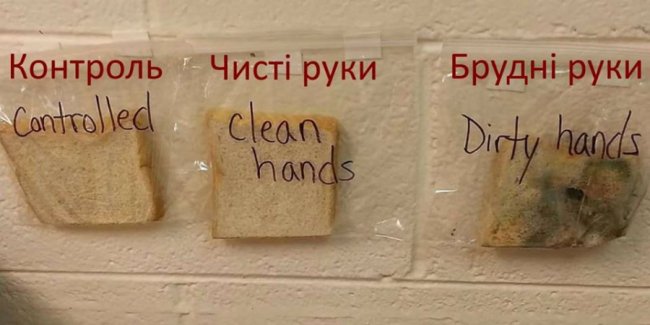 Контроль
Controlled
Чисті руки
clean
hands
Брудні руки
Dirty hands